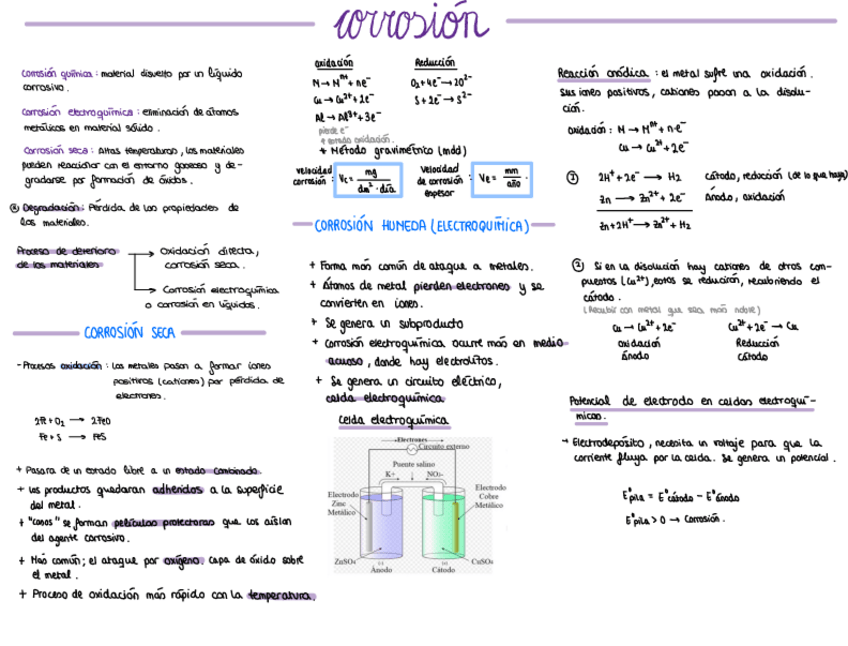 corrosión
Corrosión química : material disuelto por un líquido
corrosivo.
Corrosión electroquímica : eliminación de átomos
metálicos en material sólido.
Corrosión seca : Altas temperaturas, los materiales
pueden reaccionar con el entorno gaseoso y de-
gradarse por formación de óxidos.
Degradación : Pérdida de las propiedades de
los materiales.
Proceso de deterioro
de los materiales
→ Oxidación directa,
corrosión seca.
→ Corrosión electroquímica
o corrosión en líquidos.
CORROSIÓN SECA
- Procesos oxidación : Los metales pasan a formar iones
positivos (cationes) por pérdida de
electrones.
2Fe + O₂ → 2FeO
Fe + S → FeS
+ Pasara de un estado libre a un estado combinado.
+ Los productos quedaran adheridos a la superficie
del metal.
+ "Casos" se forman películas protectoras que los aislan
del agente corrosivo.
+ Más común; el ataque por oxígeno. Capa de óxido sobre
el metal.
+ Proceso de oxidación más rápido con la temperatura.
Oxidación
M → Mⁿ⁺ + ne⁻
Cu → Cu²⁺ + 2e⁻
Al → Al³⁺ + 3e⁻
pierde e⁻
↑ estado oxidación.
Reducción
O₂ + 4e⁻ → 2O²⁻
S + 2e⁻ → S²⁻
+ Método gravimétrico (mdd)
velocidad
corrosión :
Vc = mg / dm² · día
Velocidad
de corrosión :
espesor
Ve = mm / año .
CORROSIÓN HUMEDA (ELECTROQUÍMICA)
+ Forma más común de ataque a metales.
+ Átomos de metal pierden electrones y se
convierten en iones.
+ Se genera un subproducto
+ Corrosión electroquímica ocurre más en medio
acuoso, donde hay electrolitos.
+ Se genera un circuito eléctrico,
celda electroquímica
Celda electroquímica
Electrones
Circuito externo
Puente salino
K+
NO₃-
Electrodo
Zinc
Metálico
Electrodo
Cobre
Metálico
ZnSO₄
(-)
Ánodo
(+)
Cátodo
CuSO₄
Reacción anódica : el metal sufre una oxidación.
Sus iones positivos, cationes pasan a la disolu-
ción.
oxidación : M → Mⁿ⁺ + n·e⁻
Cu → Cu²⁺ + 2e⁻
① 2H⁺ + 2e⁻ → H₂ Cátodo, reducción (de lo que haya)
Zn → Zn²⁺ + 2e⁻ Ánodo, oxidación
Zn + 2H⁺ → Zn²⁺ + H₂
② Si en la disolución hay cationes de otros com-
puestos (Cu²⁺), estos se reducirán, recubriendo el
cátodo.
(Recubrir con metal que sea más noble)
Cu → Cu²⁺ + 2e⁻
oxidación
ánodo
Cu²⁺ + 2e⁻ → Cu
Reducción
Cátodo
Potencial de electrodo en celdas electroquí-
micas.
→ Electrodepósito, necesita un voltaje para que la
corriente fluya por la celda. Se genera un potencial.
E°pila = E°cátodo - E°ánodo
E°pila > 0 → Corrosión.